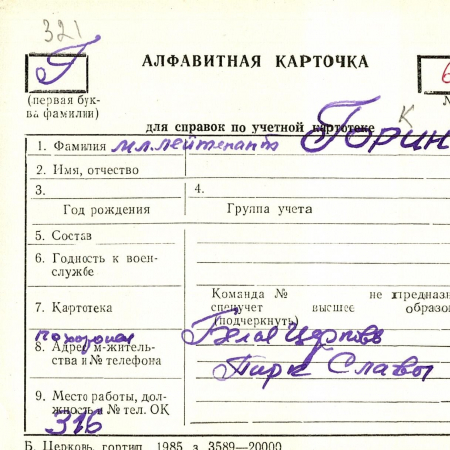 321
Г
АЛФАВИТНАЯ КАРТОЧКА
6
(первая бук-
ва фамилии)
№
для справок по учетной картотеке
К
1. Фамилия мл.лейтенант Горин
2. Имя, отчество
3. 4.
Год рождения Группа учета
5. Состав
6. Годность к воен-
службе
Команда № не предназн
7. Картотека спецучет высшее образо
(подчеркнуть)
похоронен Белая Церковь
8. Адрес м-житель-
ства и № телефона Парк Славы
9. Место работы, дол-
жность и № тел. ОК
316
Б. Церковь, гортип. 1985 з. 3589—20000